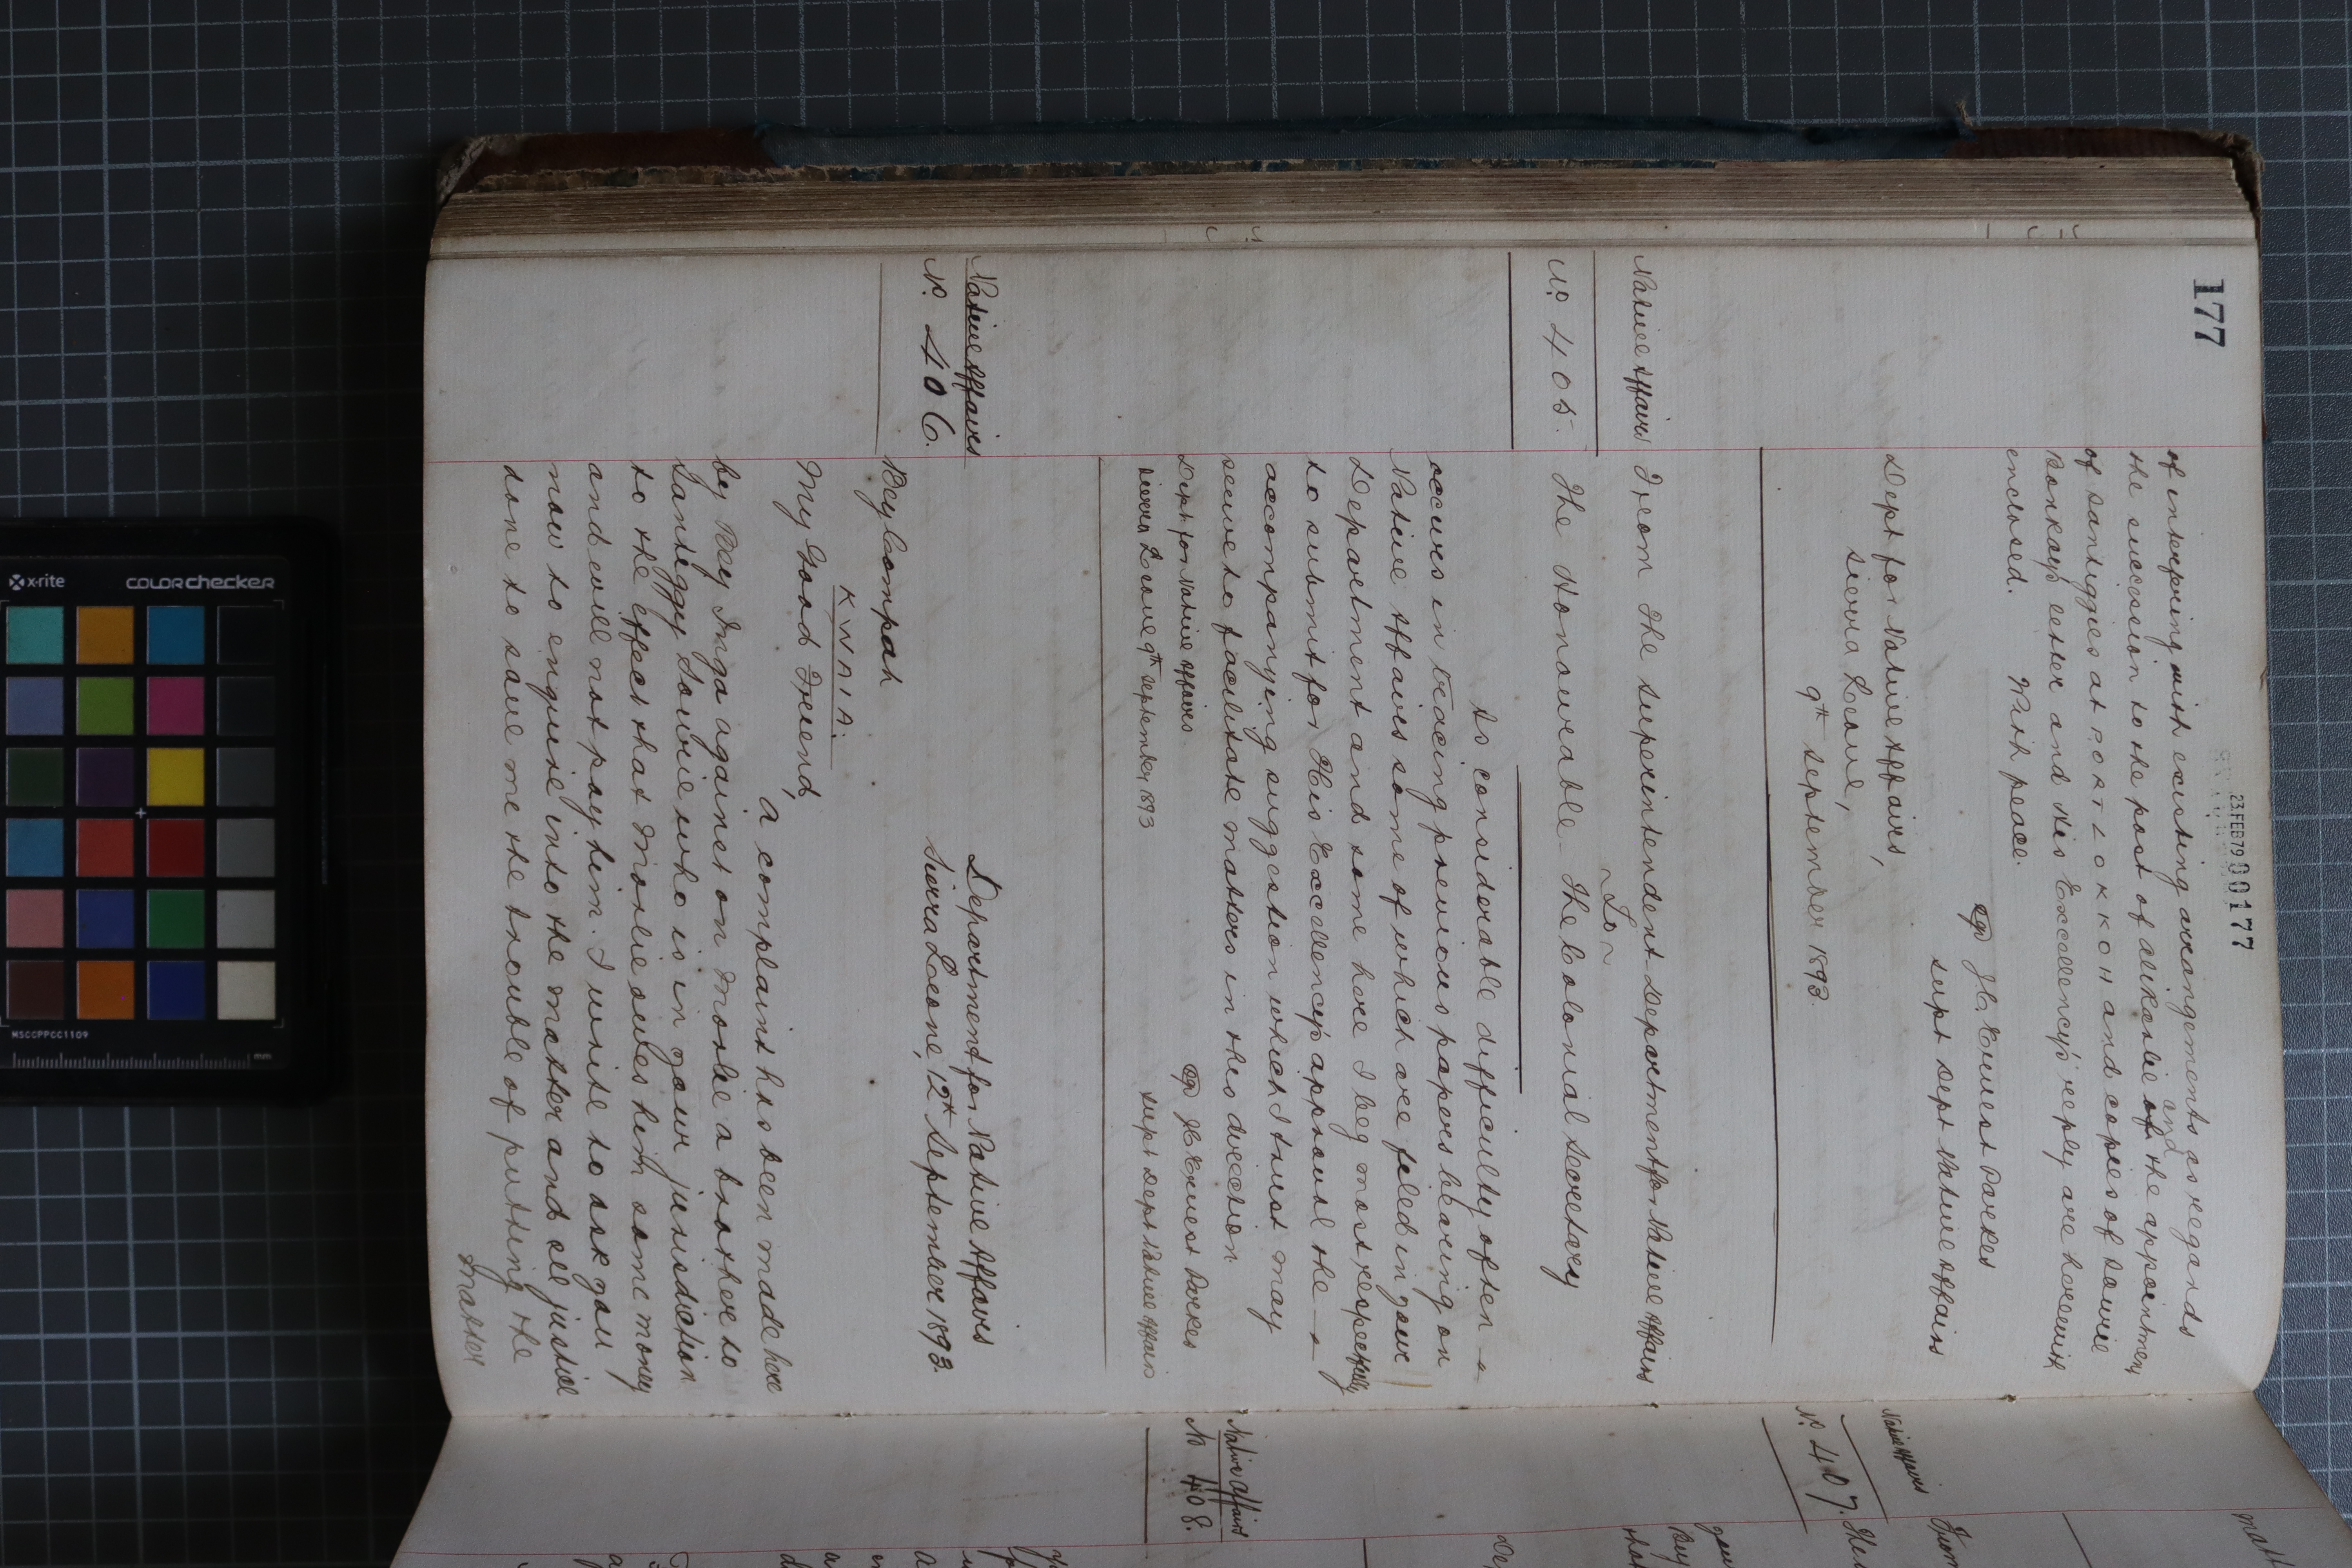 177
23 FEB 79 00177
of interfering with existing arrangements as regards
the succession to the post of alikarlie of the and appointment
of santiggies at PORT LOKKOH and copies of Sawie
Bonkays letter and His Excellency's reply are herewith
enclosed. With peace.
sgd J.C. Ernest Parkes
Supt Dept Native Affairs
Dept for Native Affairs,
Sierra Leone,
9th September 1893.
Native Affairs
No. 405.
From The Superintendent Department for Native Affairs
To
The Honourable The Colonial Secretary
As considerable difficulty often
occurs in tracing previous papers bearing on
Native Affairs some of which are filed in your
Department and some here I beg most respectfully
to submit for His Excellency approval the
accompanying suggestion which I trust may
serve to facilitate matters in this direction
sgd J.C. Ernest Parkes
Supt Dept Native Affairs
Dept for Native Affairs
Sierra Leone 9th September 1893
Native Affairs
No. 406.
Department for Native Affairs
Sierra Leone, 12th September 1893.
Bey Compah
KWAIA.
My Good Friend,
A complaint has been made here
by Bey Inga against on Morlie a brother to
Santiggy Sourie who is in your jurisdiction
to the effect that Morlie owes him some money
and will not pay him. I write to ask you
now to enquire into the matter and see justice
done to save me the trouble of putting the
matter
Native Affairs
No. 407.
Native Affairs
No 408.
x-rite
colorchecker
MSCCPPCC1109
mm